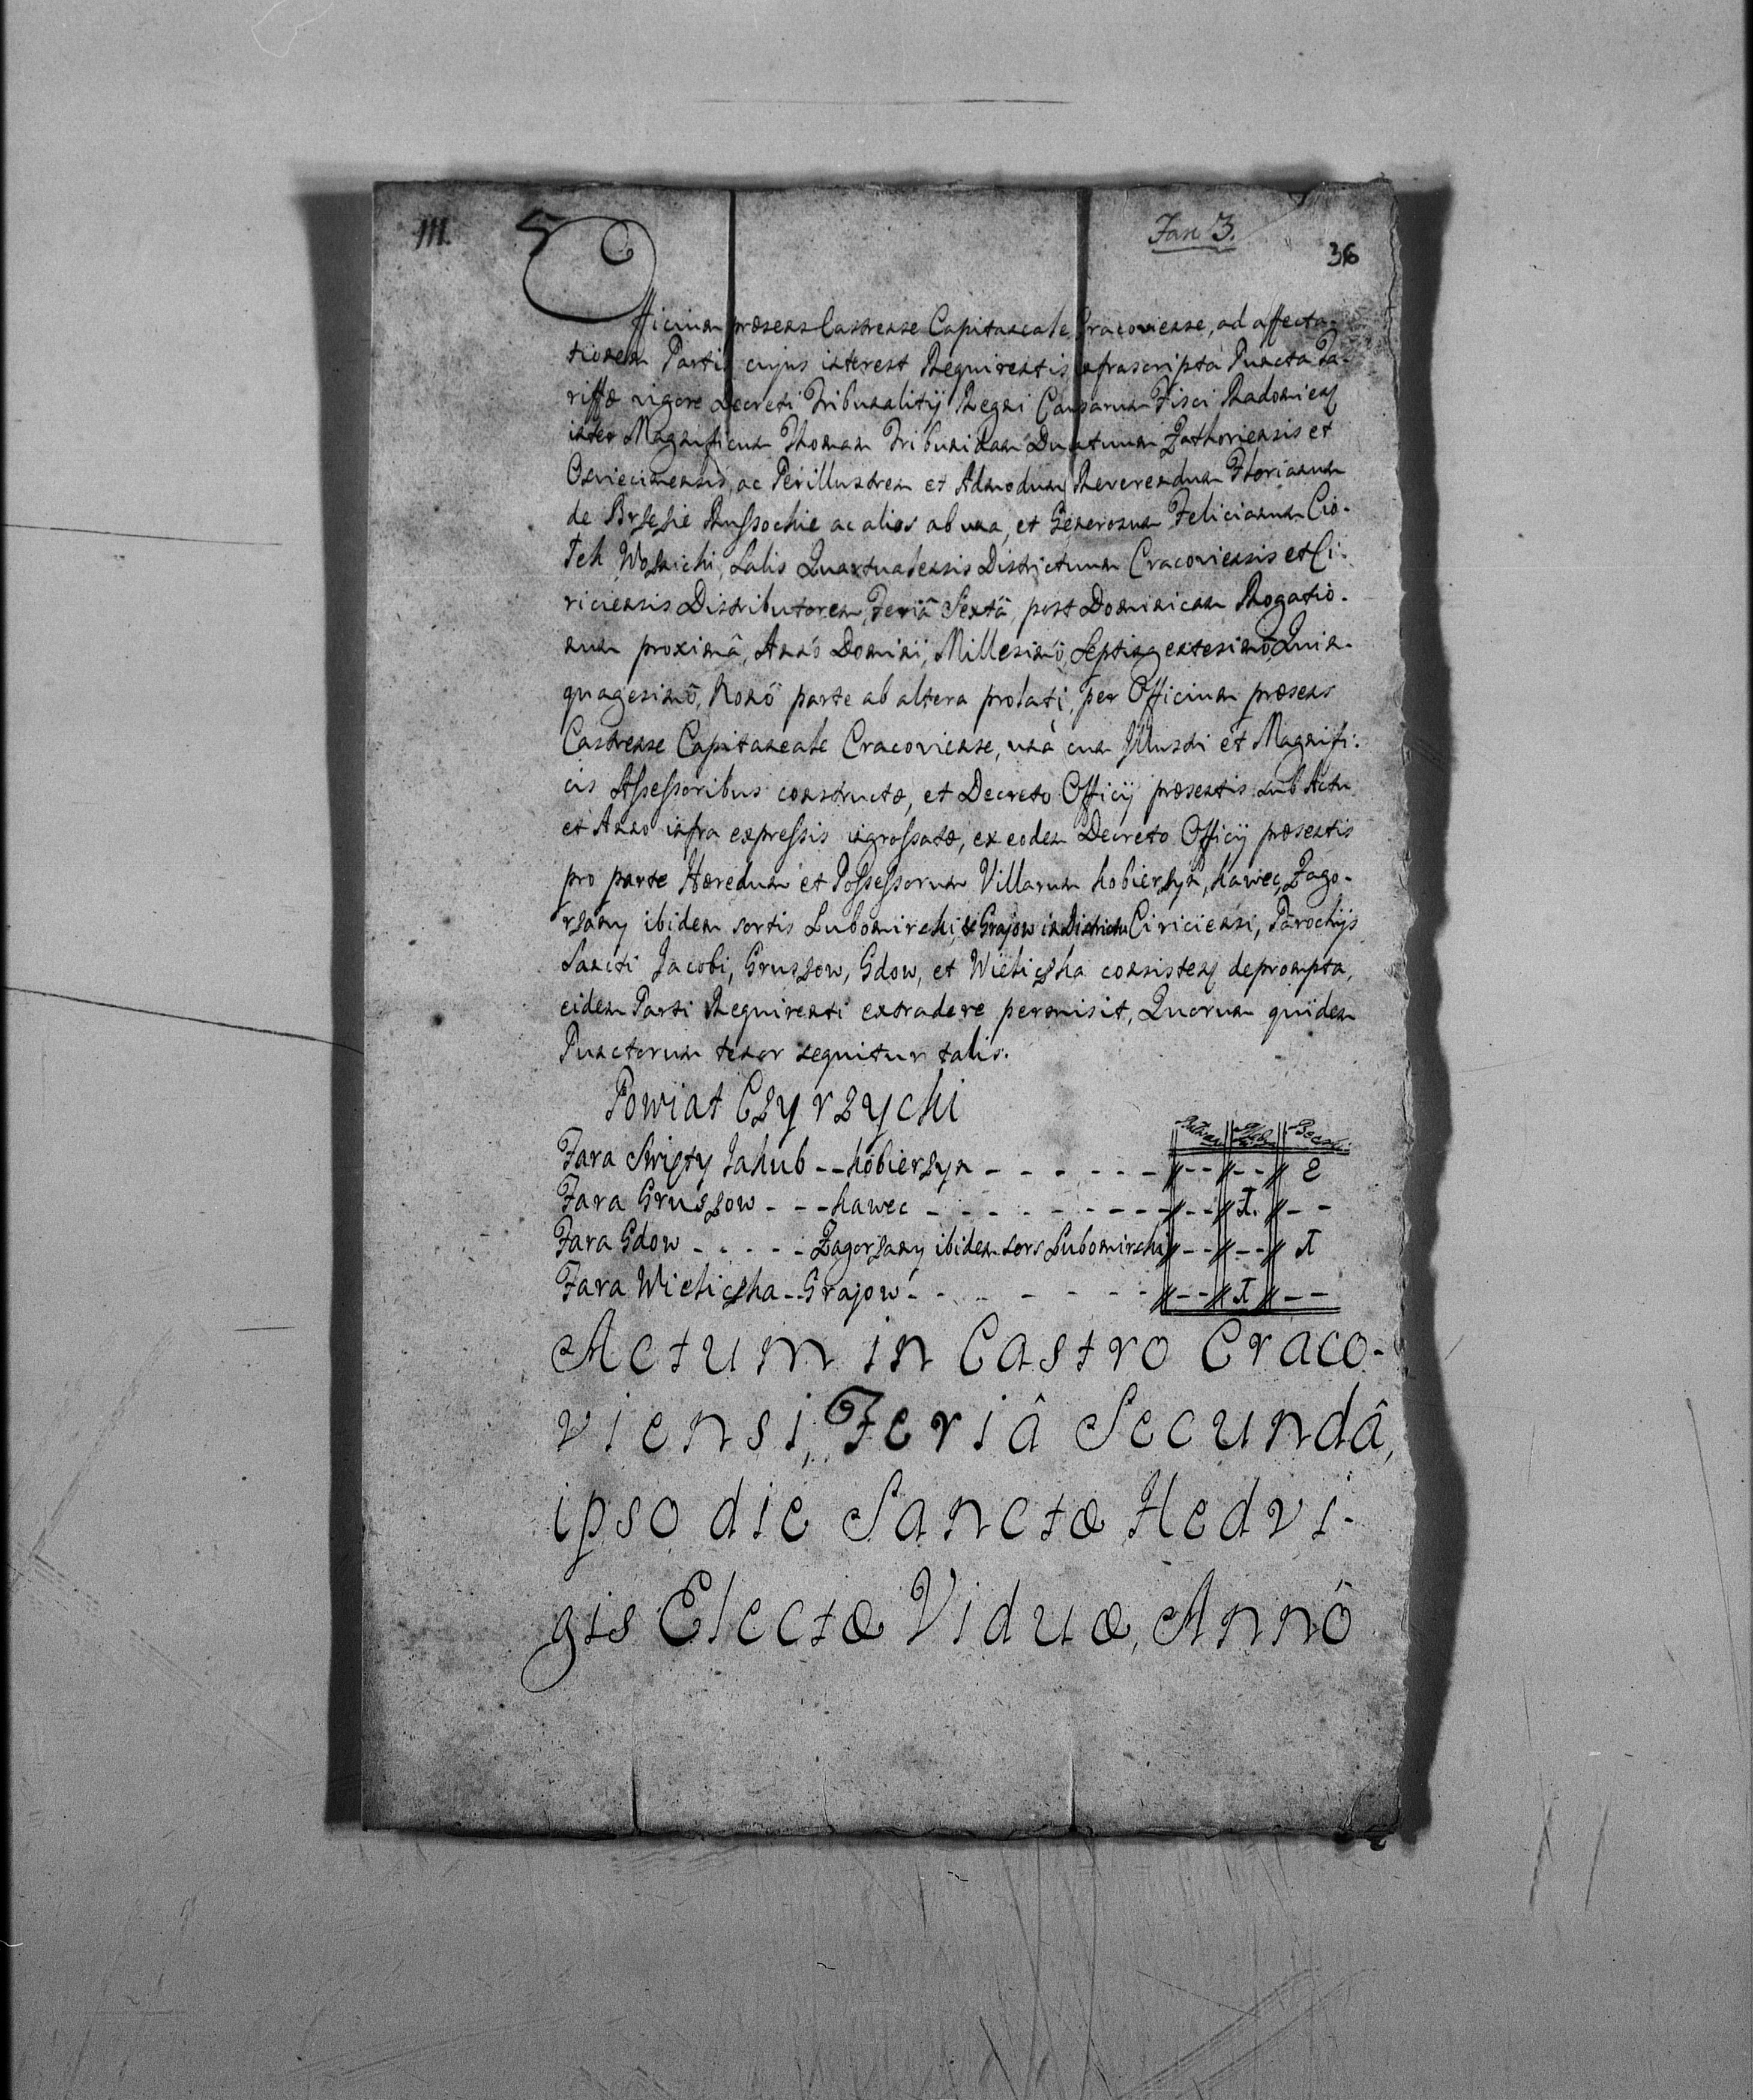 III.
Fasc 3.
36
Officium præsens Castrense Capitaneale Cracoviense, ad affecta-
tionem Partis cujus interest Requirentis infrascripta Puncta Ta-
riffæ vigore Decreti Tribunalitij Regni Causarum Fisci Radomien
inter Magnificum Thomam Tribunidam Ducatuum Zathoriensis et
Osviecimensis, ac Perillustrem et Admodum Reverendum Florianum
de Brzezie Russockie ac alios ab una, et Generosum Felicianum Cio-
łek Woźnicki, Salis Quartualensis Districtuum Cracoviensis et Ci-
riciensis Distributorem, Feriâ Sextâ, post Dominicam Rogatio-
num proximâ, Annô Domini, Millesimô, Septingentesimô, Quin-
quagesimô, Nonô parte ab altera prolati, per Officium præsens
Castrense Capitaneale Cracoviense, unà cum Illustri et Magnifi-
cis Assessoribus constructæ, et Decreto Officij præsentis sub Actu
et Anno infra expressis ingrossatæ, ex eodem Decreto Officij præsentis
pro parte Hæredum et Possessorum Villarum Kobierzyn, Kawec, Zago-
rzany ibidem sortis Lubomirski, & Grajow in Districtu Ciriciensi, Parochijs
Sancti Jacobi, Gruszow, Gdow, et Wieliczka consisten deprompta,
eidem Parti Requirenti extradere permisit, Quorum quidem
Punctorum tenor sequitur talis.
Powiat Czyrzycki
Beczki
Fara Swięty Jakub -- Kobierzyn - - - - - - // - - // - - // 2
Fara Gruszow - - - Kawec - - - - - - - - - // - - // 1. // - -
Fara Gdow - - - - - Zagorzany ibidem sors Lubomirski // - - // - - // 1
Fara Wieliczka -- Grajow - - - - - - - // - - // 1 // - -
Actum in Castro Craco-
viensi, Feriâ Secundâ,
ipso die Sanctæ Hedvi-
gis Electæ Viduæ, Annô